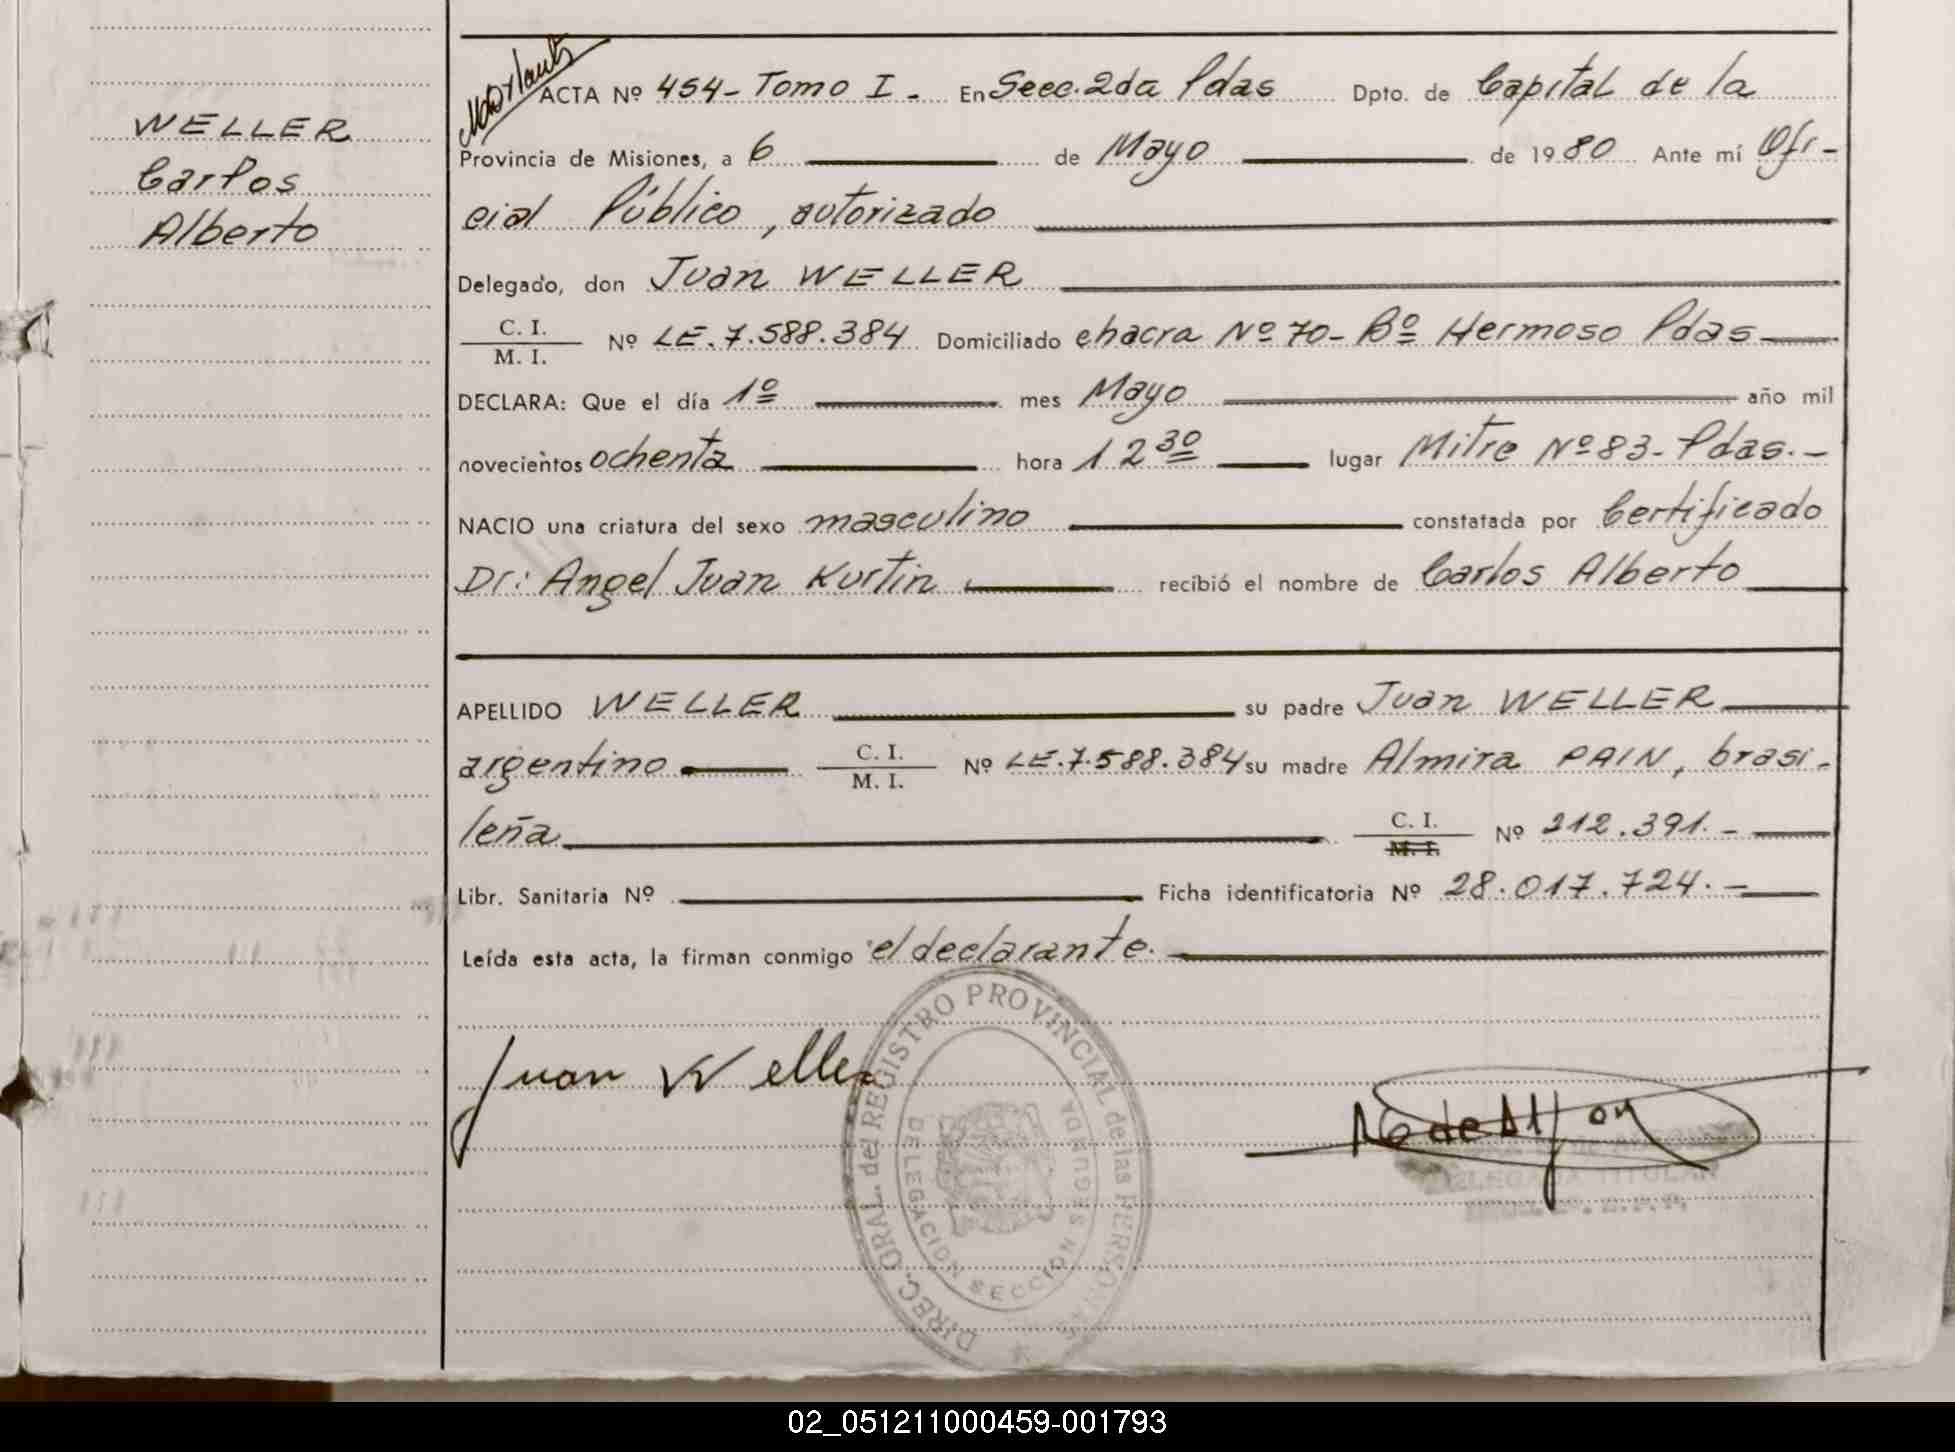 WELLER
Carlos
Alberto
ACTA Nº 454- Tomo I.- En Secc. 2da Pdas Dpto. de Capital de la
Provincia de Misiones, a 6 de Mayo de 1980 Ante mí Ofi-
cial Público, autorizado
Delegado, don Juan WELLER
C. I.
M. I. Nº LE.7.588.384 Domiciliado chacra Nº 70- Bº Hermoso Pdas
DECLARA: Que el día 1º mes Mayo año mil
novecientos ochenta hora 12 30 lugar Mitre Nº 83- Pdas.-
NACIO una criatura del sexo masculino constatada por Certificado
Dr: Angel Juan Kurtin recibió el nombre de Carlos Alberto
APELLIDO WELLER su padre Juan WELLER
argentino C. I. M. I. Nº LE.7.588.384 su madre Almira PAIN, brasi-
leña C. I. M. I. Nº 212.391.-
Libr. Sanitaria Nº Ficha identificatoria Nº 28.017.724.-
Leída esta acta, la firman conmigo el declarante.
Juan Weller
DIREC. GRAL. del REGISTRO PROVINCIAL de las PERSONAS
DELEGACION SECCION SEGUNDA
DELEGADA TITULAR
02_051211000459-001793